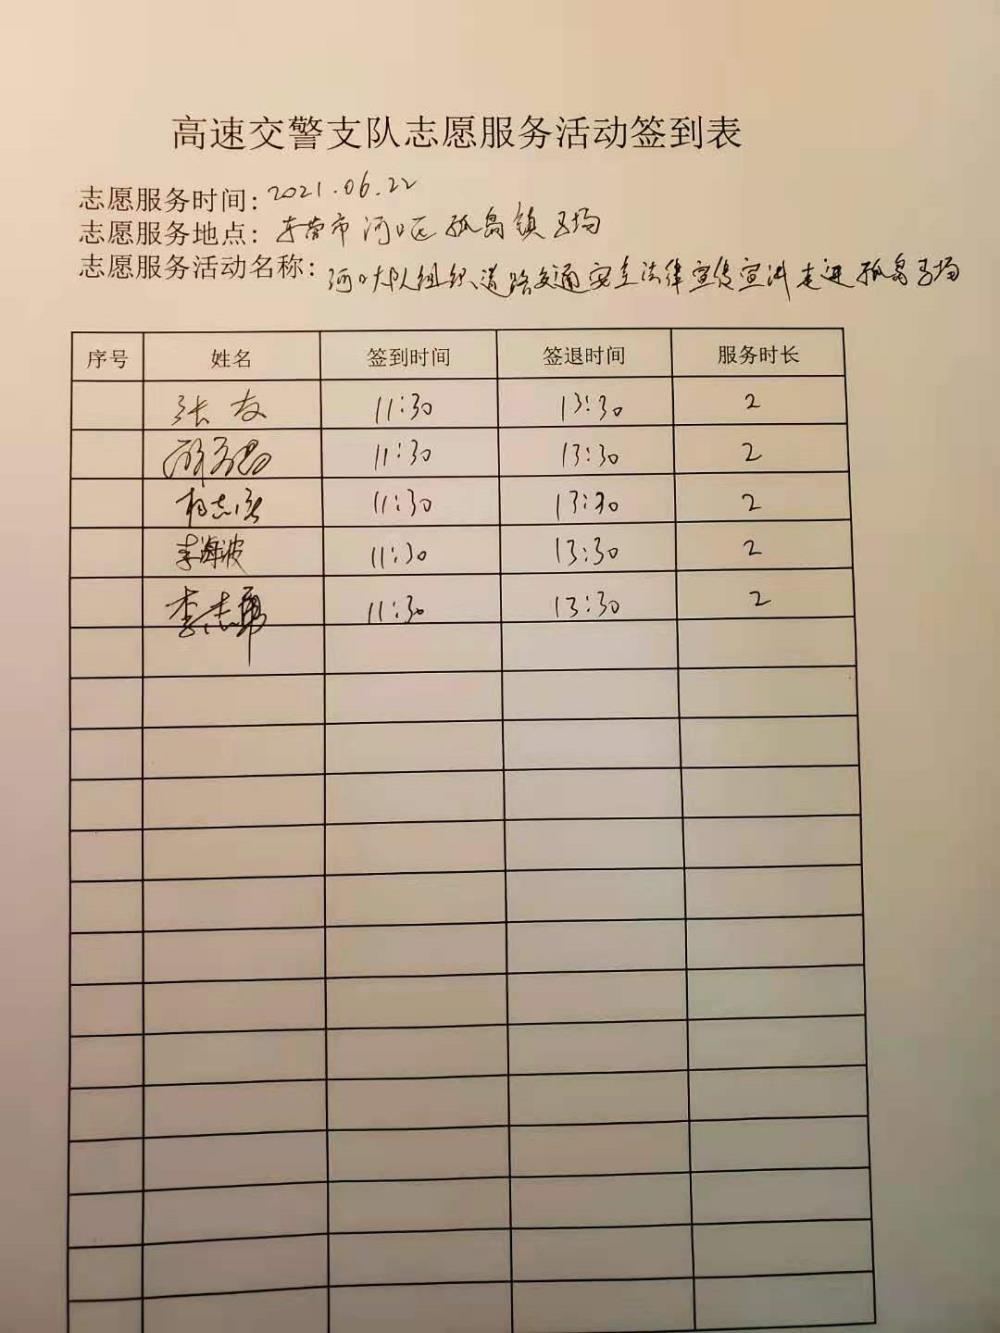 高速交警支队志愿服务活动签到表
志愿服务时间：2021.06.22
志愿服务地点：东营市河口区孤岛镇马场
志愿服务活动名称：河口大队组织道路交通安全法律宣传宣讲走进孤岛马场
序号 姓名 签到时间 签退时间 服务时长
张友 11:30 13:30 2
11:30 13:30 2
杨志 11:30 13:30 2
李海波 11:30 13:30 2
李志勇 11:30 13:30 2